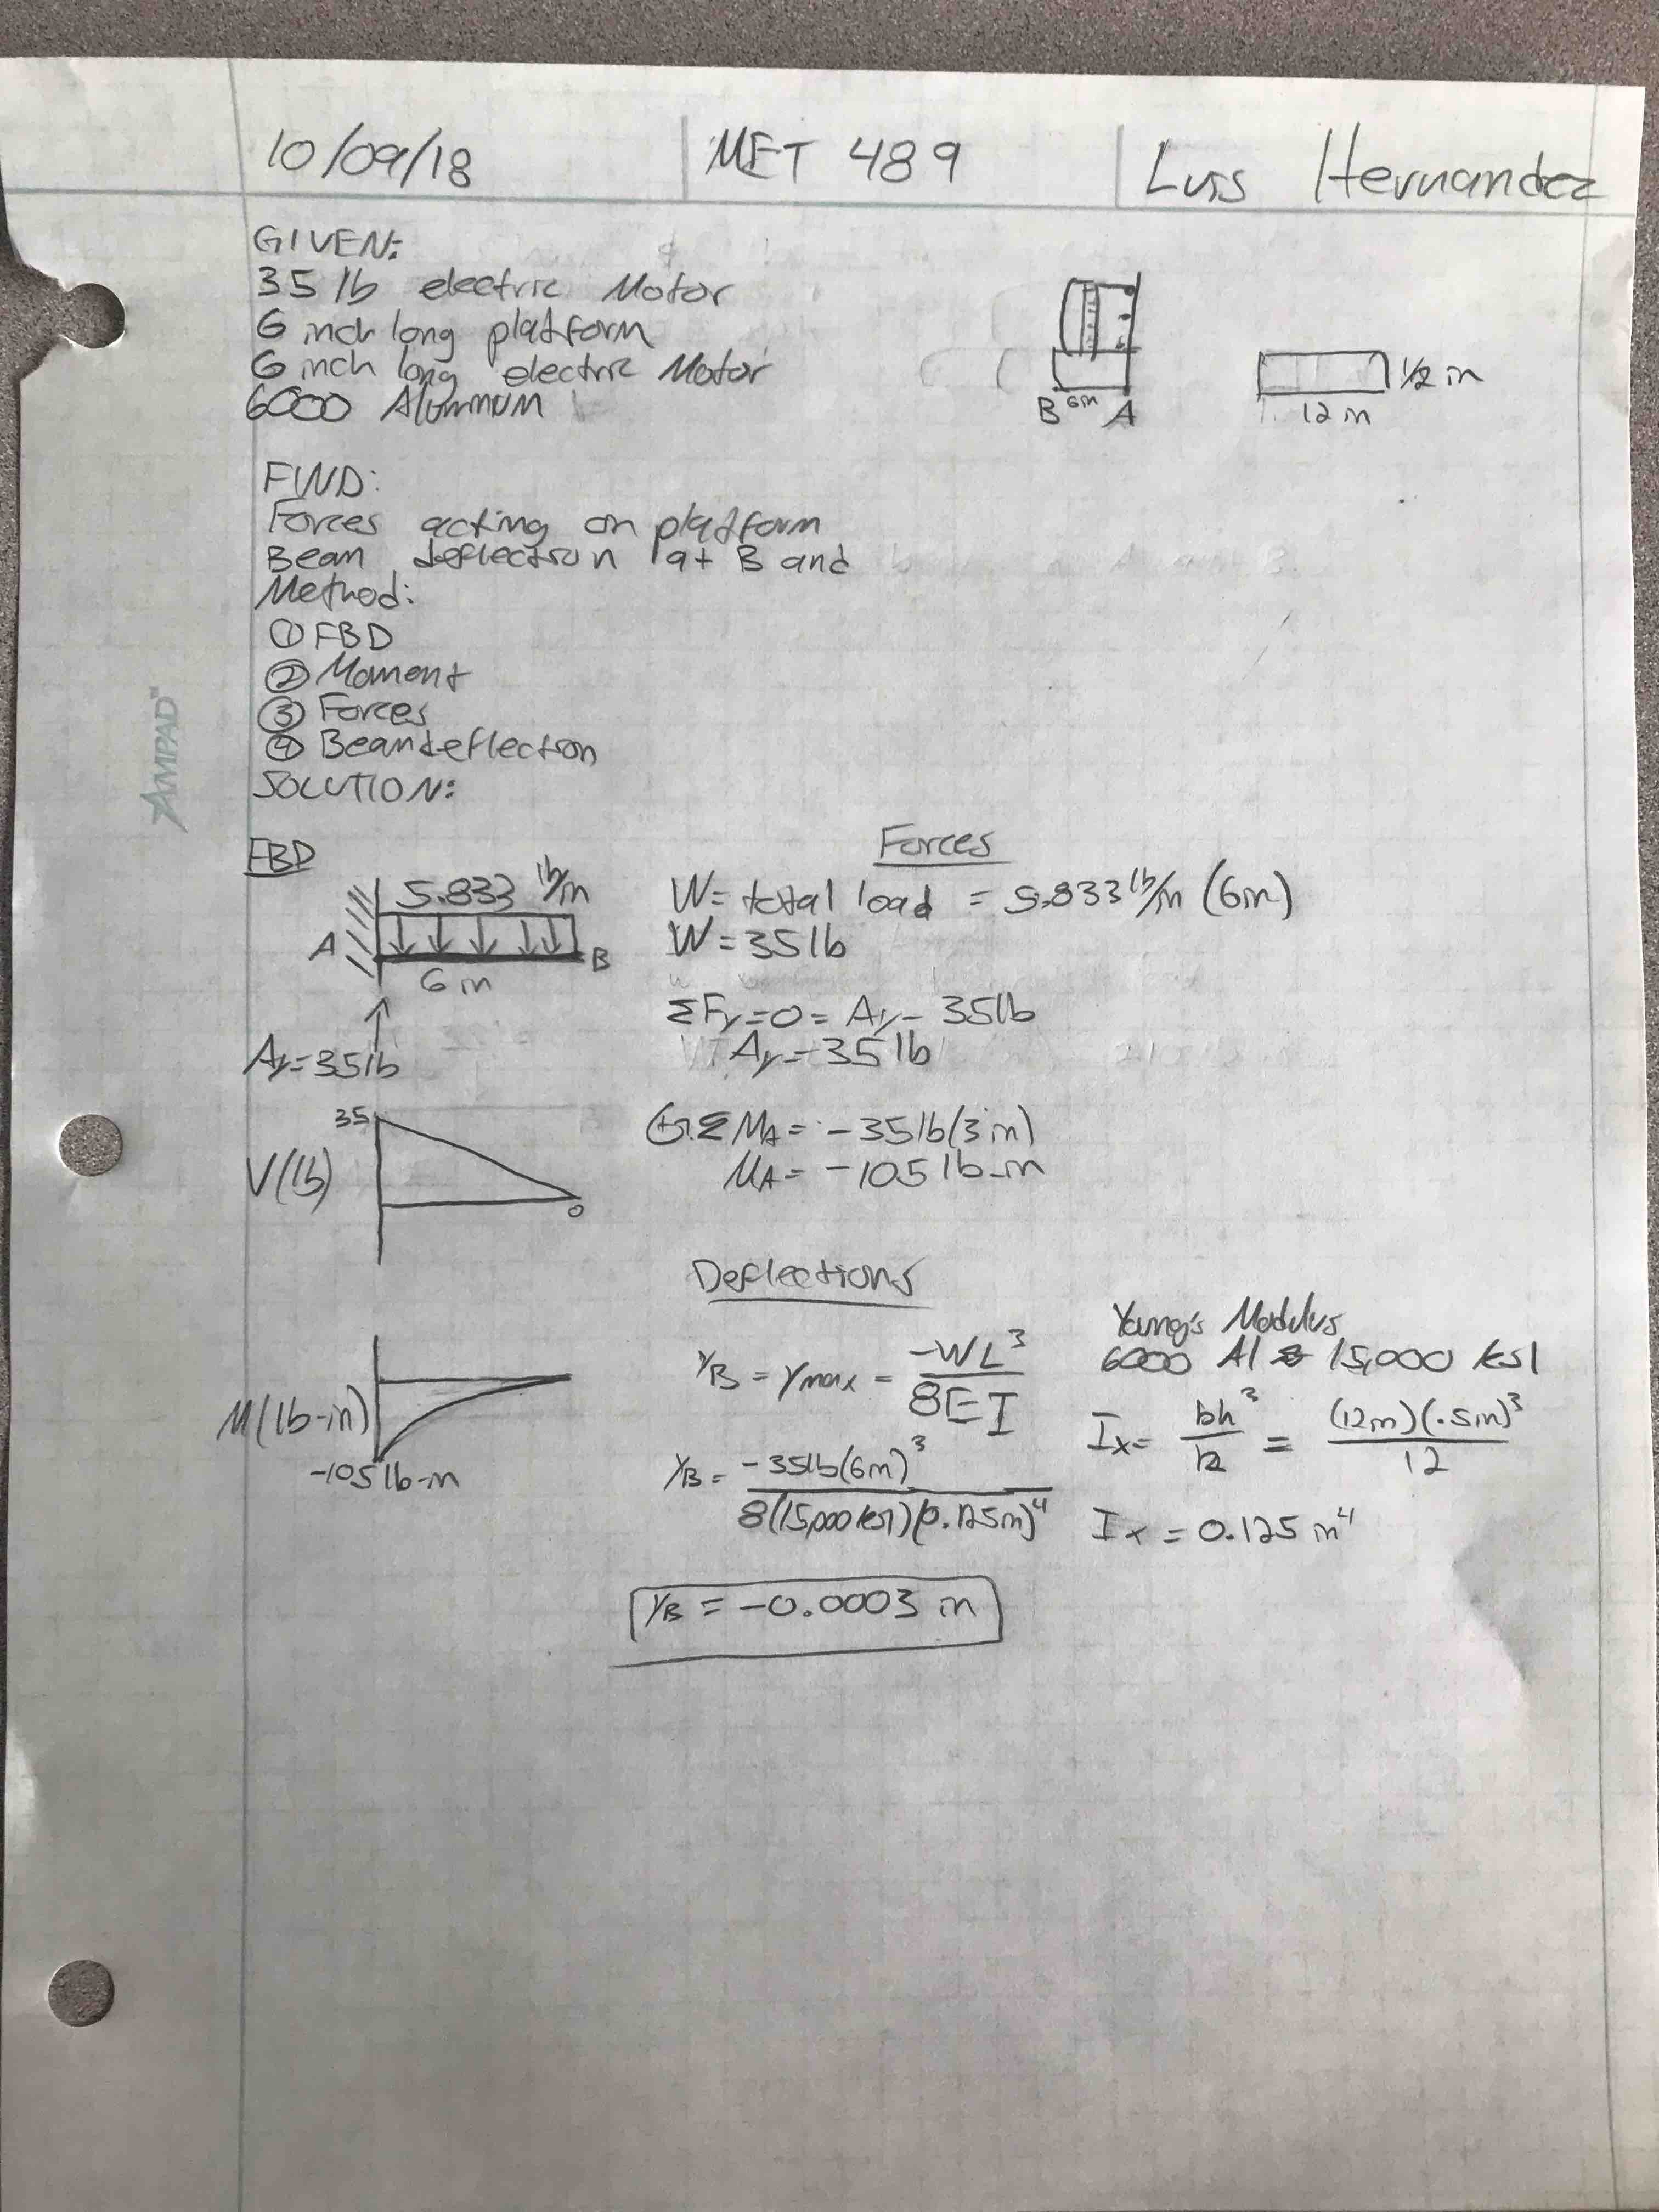 10/09/18 MET 489 Luis Hernandez
GIVEN:
35 lb electric Motor
6 inch long platform
6 inch long electric Motor
6000 Aluminum
B 6in A
1/2 in
12 in
FIND:
Forces acting on platform
Beam deflection at B and
Method:
① FBD
② Moment
③ Forces
④ Beam deflection
SOLUTION:
FBD
5.833 lb/in
A
B
6 in
Ay=35lb
35
V(lb)
0
M(lb-in)
-105 lb-in
Forces
W= total load = 5.833 lb/in (6in)
W=35lb
ΣFy=0= Ay- 35lb
Ay=35 lb
+ΣMA= -35lb(3in)
MA= -105 lb-in
Deflections
yB = ymax = -WL³/8EI
yB = -35lb(6in)³/8(15,000 ksi)(0.125in)⁴
yB = -0.0003 in
Young's Modulus
6000 Al 15,000 ksi
Ix= bh³/12 = (12in)(.5in)³/12
Ix = 0.125 in⁴
AMPAD™